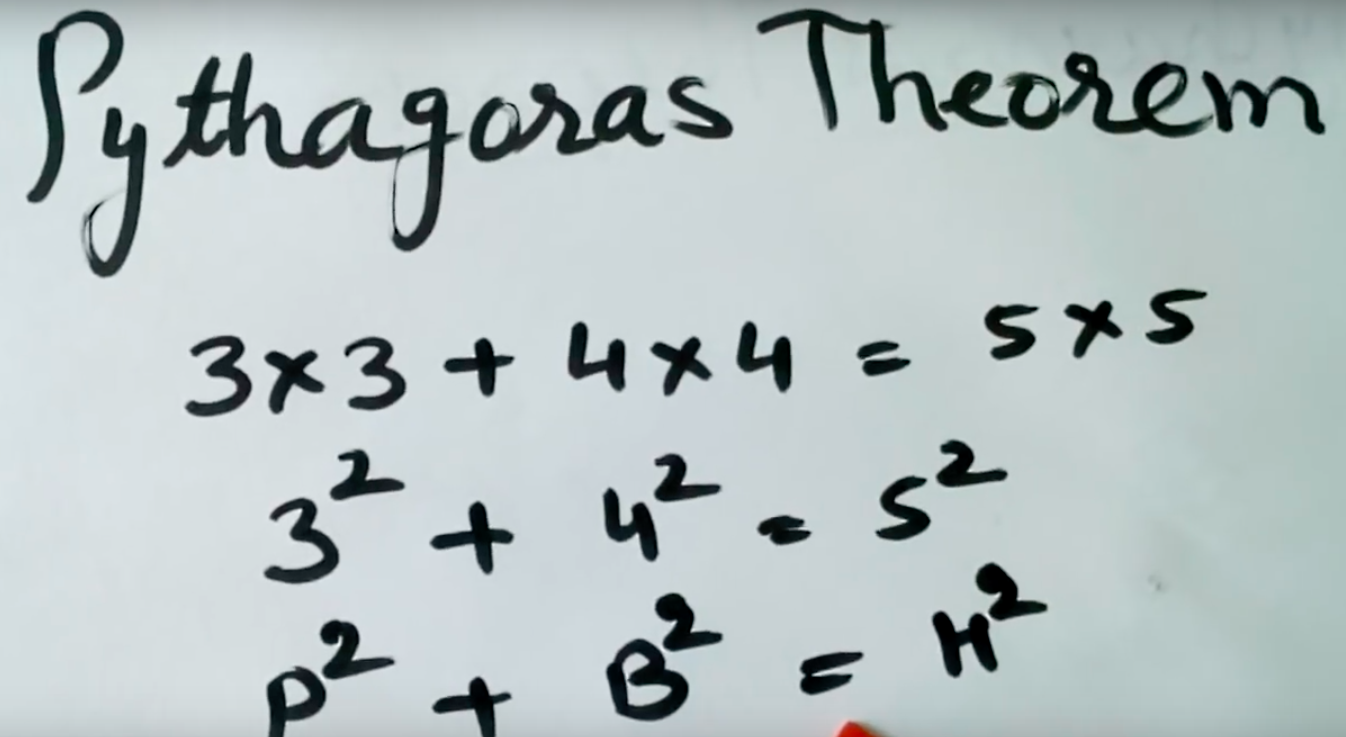 Pythagoras Theorem
3×3 + 4×4 = 5×5
3² + 4² = 5²
P² + B² = H²